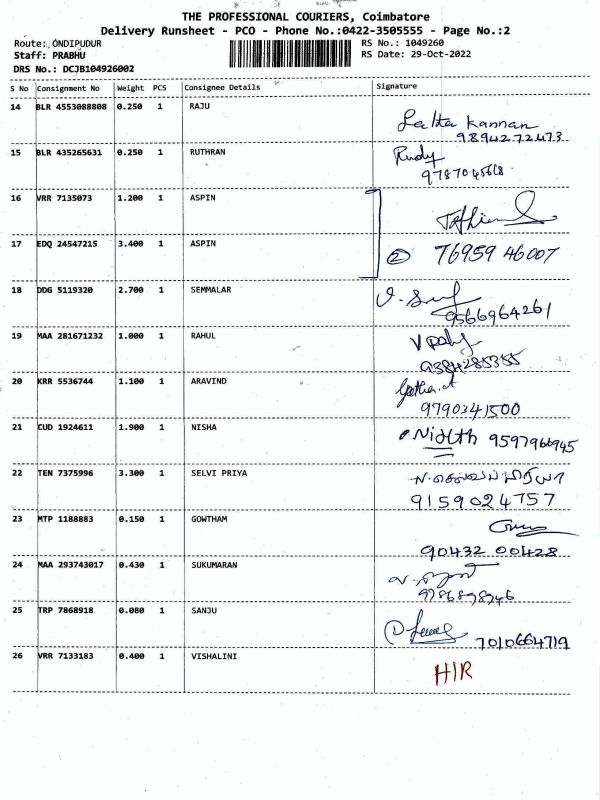 THE PROFESSIONAL COURIERS, Coimbatore
Delivery Runsheet - PCO - Phone No.:0422-3505555 - Page No.:2
Route: ONDIPUDUR
RS No.: 1049260
Staff: PRABHU
RS Date: 29-Oct-2022
DRS No.: DCJB104926002
S No Consignment No Weight PCS Consignee Details Signature
14 BLR 4553088808 0.250 1 RAJU
Lalita Kannan
9894272473
15 BLR 435265631 0.250 1 RUTHRAN
Rudy
16 VRR 7135073 1.200 1 ASPIN
17 EDQ 24547215 3.400 1 ASPIN
② 76959 46007
18 DDG 5119320 2.700 1 SEMMALAR
9566964261
19 MAA 281671232 1.000 1 RAHUL
9384285355
20 KRR 5536744 1.100 1 ARAVIND
9790341500
21 CUD 1924611 1.900 1 NISHA
9597966945
22 TEN 7375996 3.300 1 SELVI PRIYA
9159024757
23 MTP 1188883 0.150 1 GOWTHAM
90432 00428
24 MAA 293743017 0.430 1 SUKUMARAN
25 TRP 7868918 0.080 1 SANJU
7010664719
26 VRR 7133183 0.400 1 VISHALINI
HIR